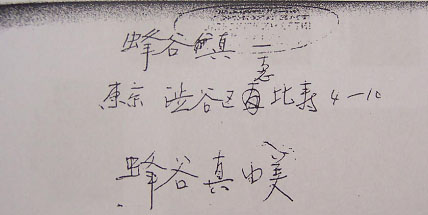 蜂谷真一
東京 渋谷区恵比寿 4-10
蜂谷真由美